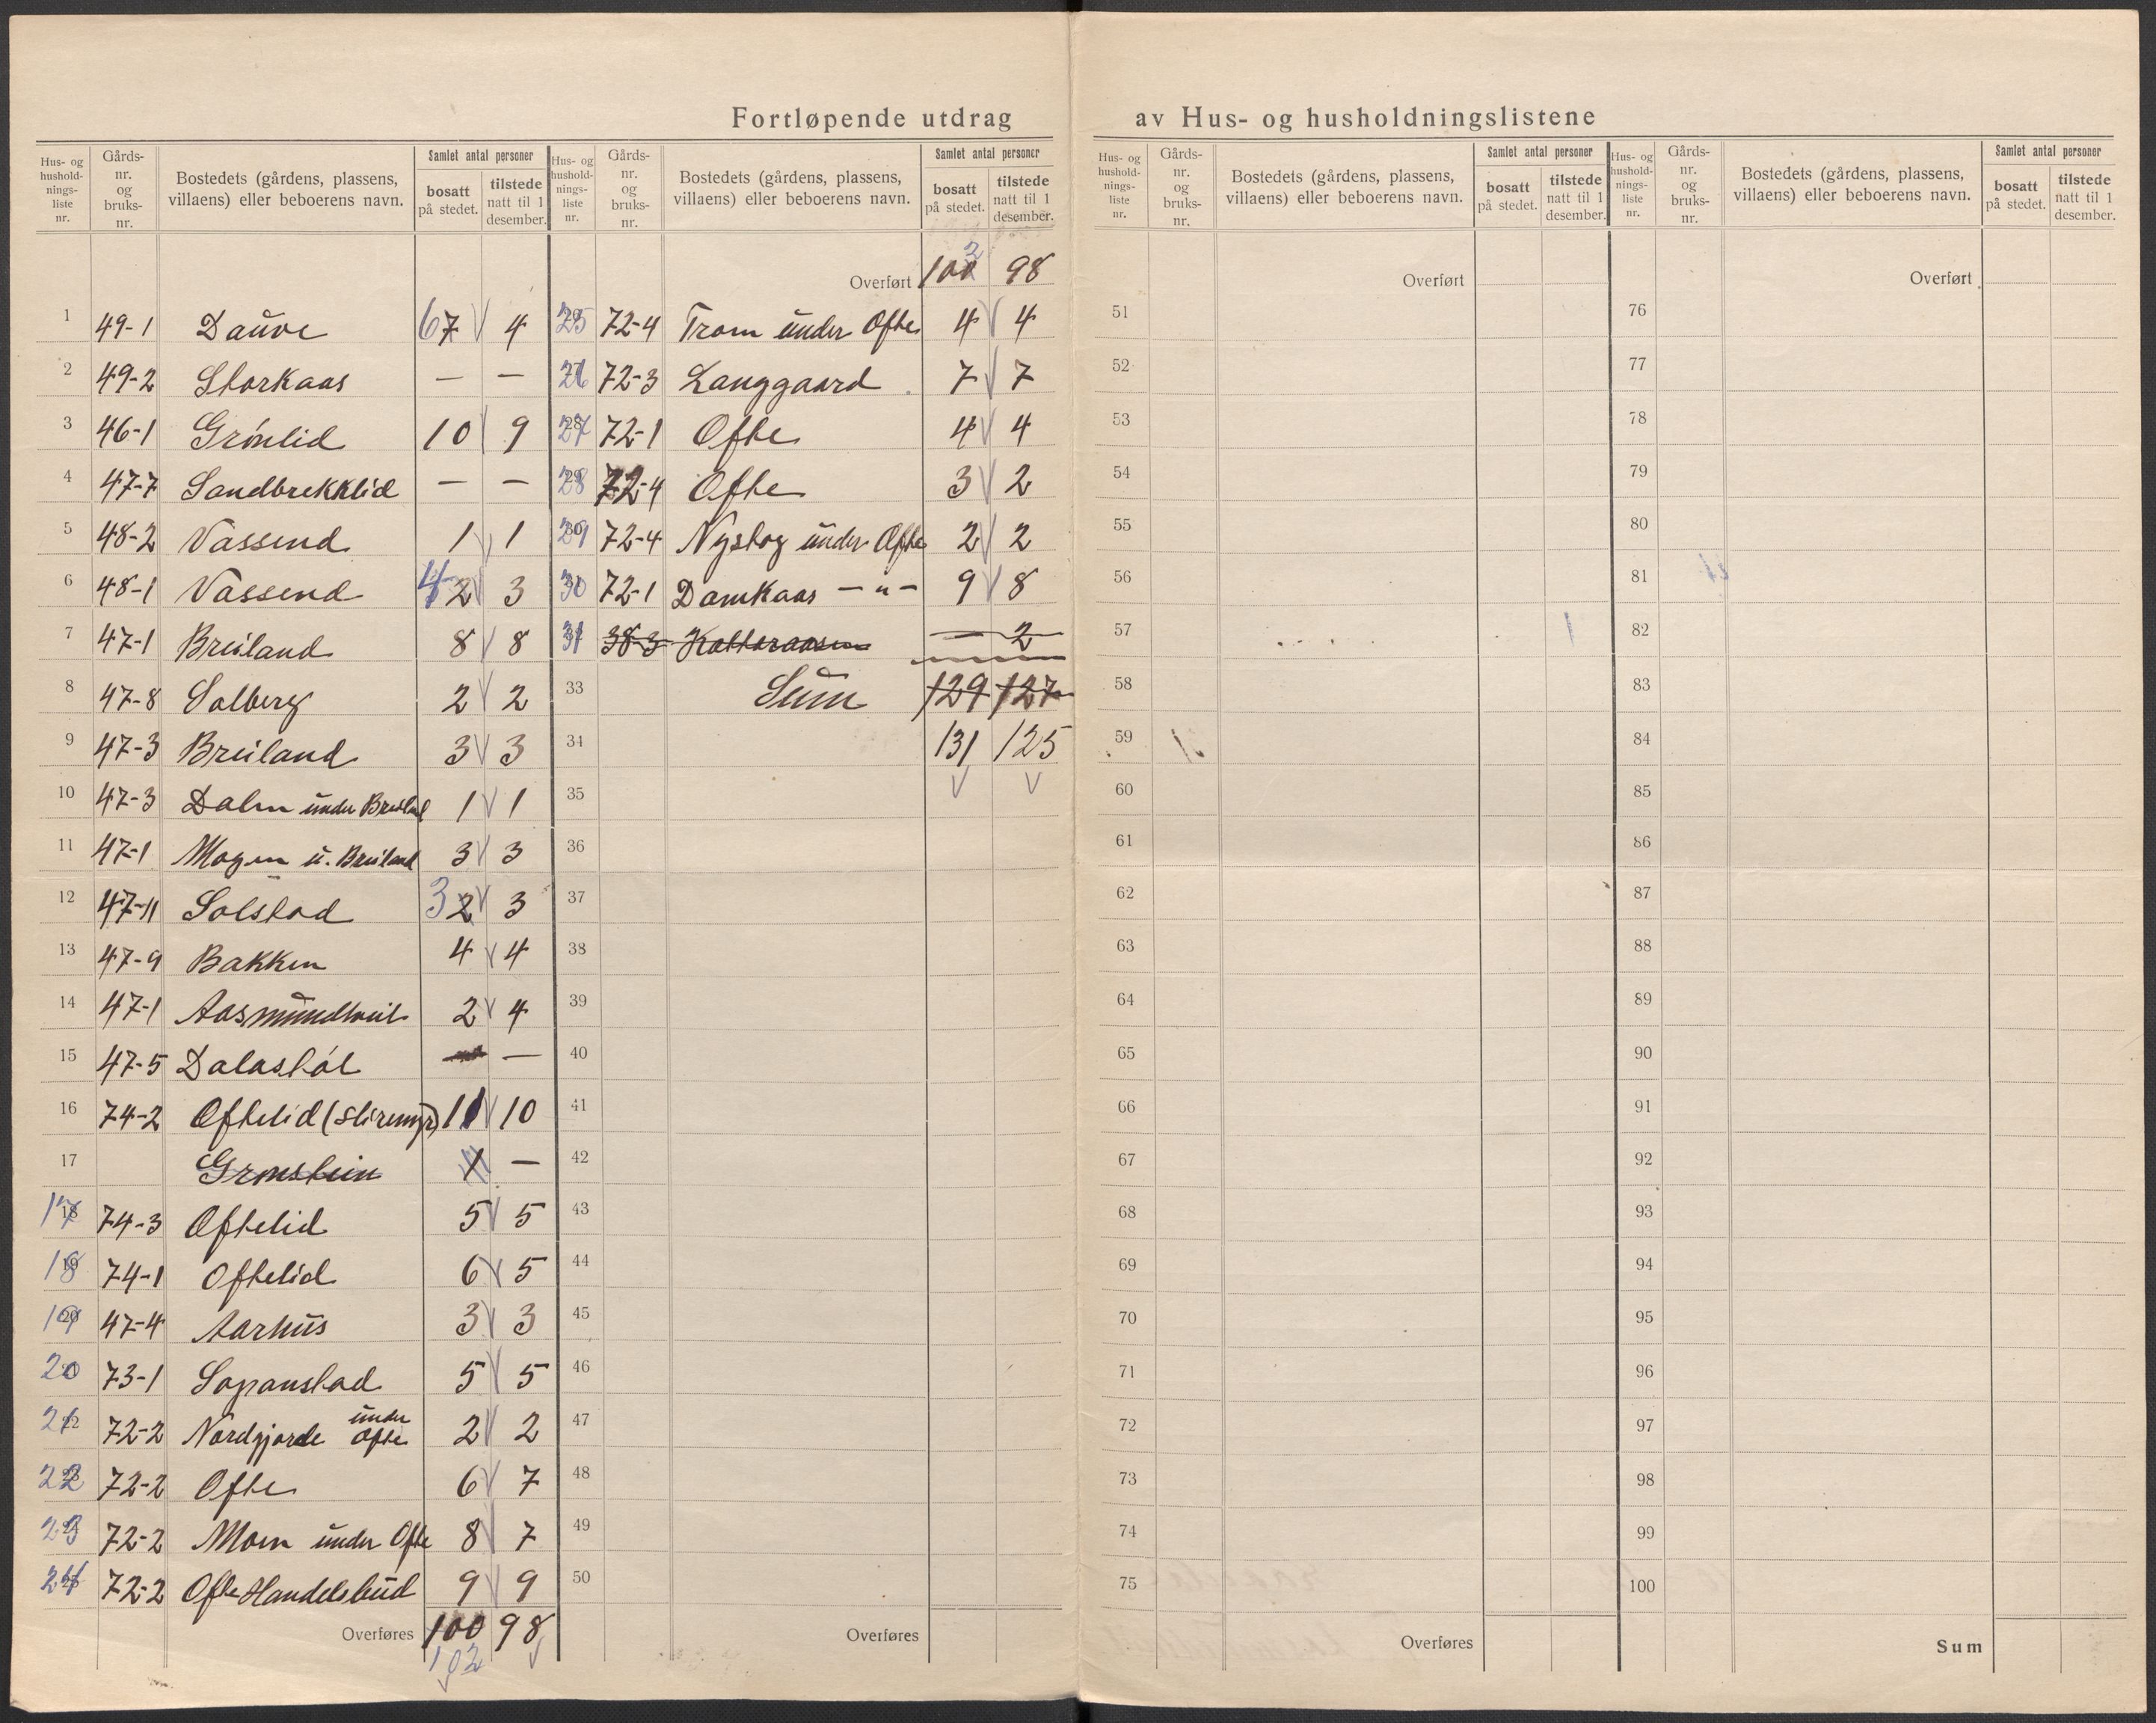 Fortløpende utdrag av Hus- og husholdningslistene
Hus- og hushold-nings-liste nr. Gårds-nr. og bruks-nr. Bostedets (gårdens, plassens, villaens) eller beboerens navn. Samlet antal personer bosatt på stedet. tilstede natt til 1 desember.
1 49-1 Dauve 67 4
2 49-2 Storkaas — —
3 46-1 Grönlid 10 9
4 47-7 Sandbrekklid — —
5 48-2 Vassend 1 1
6 48-1 Vassend 4 2 3
7 47-1 Breiland 8 8
8 47-8 Solberg 2 2
9 47-3 Breiland 3 3
10 47-3 Dalen under Breiland 1 1
11 47-1 Mogen u. Breiland 3 3
12 47-11 Solstad 3 2 3
13 47-9 Bakken 4 4
14 47-1 Aasmundtveit 2 4
15 47-5 Dalastöl —
16 74-2 Oftelid 11 10
17 Grönstein 1 —
17 18 74-3 Oftelid 5 5
18 19 74-1 Oftelid 6 5
19 20 47-4 Aarhus 3 3
20 73-1 5 5
21 22 72-2 Nordgjorde under Ofte 2 2
22 72-2 Ofte 6 7
23 72-2 Moen under Ofte 8 7
24 72-2 Ofte Handelsbud 9 9
Overføres 100 98
102
Hus- og hushold-nings-liste nr. Gårds-nr. og bruks-nr. Bostedets (gårdens, plassens, villaens) eller beboerens navn. Samlet antal personer bosatt på stedet. tilstede natt til 1 desember.
Overført 100 2 98
25 72-4 Trom under Ofte 4 4
26 72-3 Langgaard 7 7
27 72-1 Ofte 4 4
28 72-4 Ofte 3 2
29 72-4 Nystog under Ofte 2 2
30 72-1 Damkaas — " — 9 8
31 38-3 — 2
33 Sum 129 127
34 131 125
35
36
37
38
39
40
41
42
43
44
45
46
47
48
49
50
Overføres
Hus- og hushold-nings-liste nr. Gårds-nr. og bruks-nr. Bostedets (gårdens, plassens, villaens) eller beboerens navn. Samlet antal personer bosatt på stedet. tilstede natt til 1 desember.
Overført
51
52
53
54
55
56
57
58
59
60
61
62
63
64
65
66
67
68
69
70
71
72
73
74
75
Overføres
Hus- og hushold-nings-liste nr. Gårds-nr. og bruks-nr. Bostedets (gårdens, plassens, villaens) eller beboerens navn. Samlet antal personer bosatt på stedet. tilstede natt til 1 desember.
Overført
76
77
78
79
80
81
82
83
84
85
86
87
88
89
90
91
92
93
94
95
96
97
98
99
100
Sum